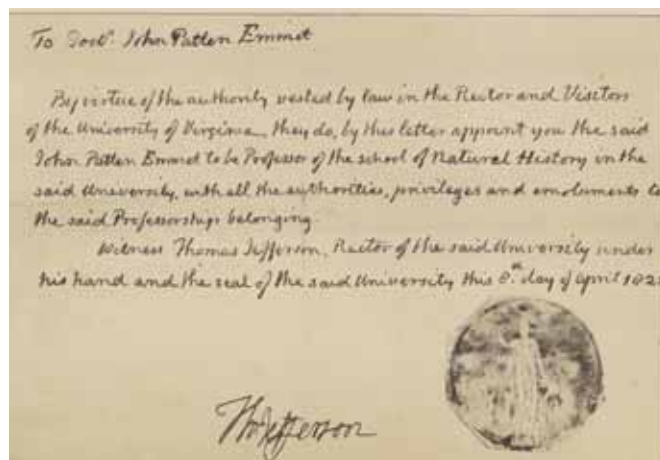 To Doctr. John Patten Emmet
By virtue of the authority vested by law in the Rector and Visitors
of the University of Virginia, they do, by this letter appoint you the said
John Patten Emmet to be Professor of the school of Natural History in the
said University, with all the authorities, privileges and emoluments to
the said Professorship belonging.
Witness Thomas Jefferson, Rector of the said University under
his hand and the seal of the said University this 8.th day of April 182
Th Jefferson